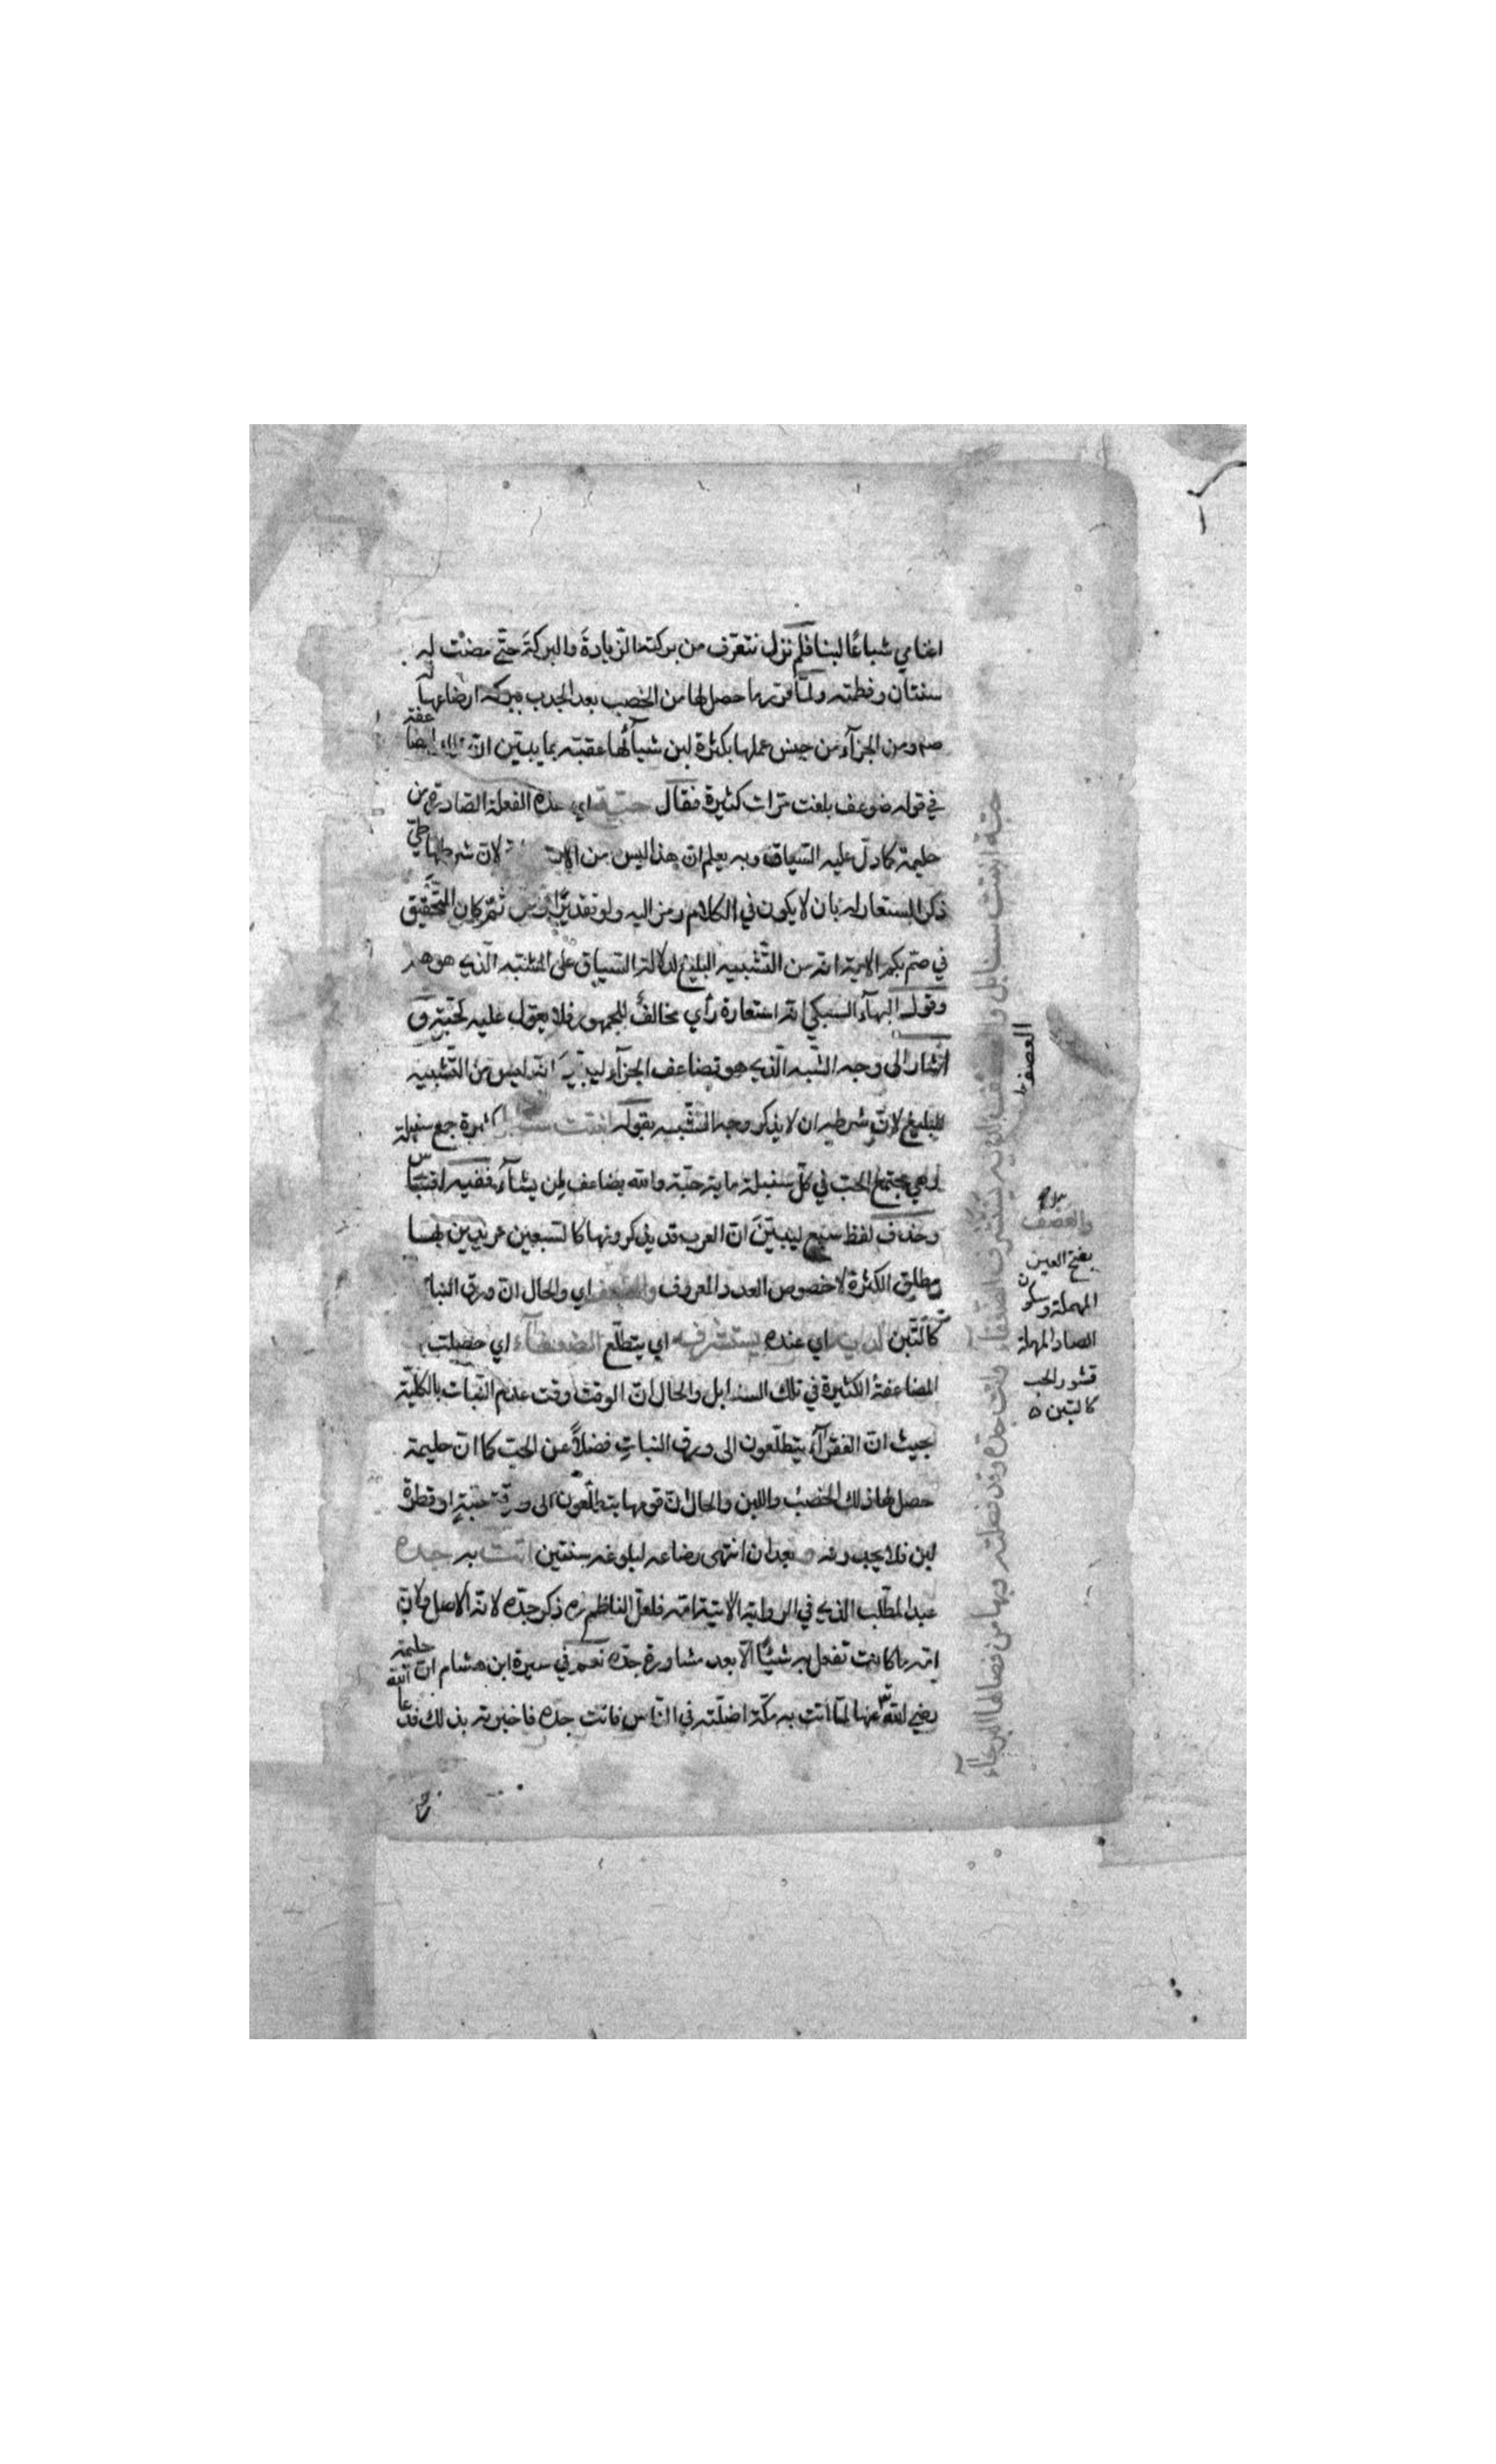 اغنامي شباعًا لبنا فلم نزل نتعرّف من بركته الزيادةَ والبركةَ حتّى مضت له
سنتان وفطمته ولمّا قوّتها حصل لها من الخصب بعد الجدب ببركة ارضاعها له
صم ومن الجزآء من جنس عملها بكثرة لبن شياهها عقبته بما يبيّن انّ ايضا
في قوله ضوعف بلغت مرّات كثيرة فقال حبّة اي هذه الفعلة الصّادرة من
حليمة كما دلّ عليه السّياق وبه يعلم ان هذا ليس من لانّ شرطها طيّ
ذكر المستعار له بان لا يكون في الكلام رمز اليه ولو تقديرًا ومن ثمّ كان التحقيق
في صمّ بكم الاية انّه من التّشبيه البليغ لدلالة السّياق على المشبّه الّذي هو هم
وقول البهآء السبكي انّه استعارة رأي مخالفٌ للجمهور فلا يعوّل عليه كحبّة و
اشار الى وجه الشّبه الّذي هو تضاعف الجزآء ليبيّن انّه ليس من التّشبيه
البليغ لانّ شرطه ان لا يذكر وجه الشّبه بقوله انبتت سنابل كثيرة جمع سنبلة
وهي مجتمع الحبّ في كلّ سنبلة ماية حبّة والله يضاعف لمن يشآء ففيه اقتباس
وحذف لفظ سبع ليبيّن انّ العرب قد يذكرونها كالسبعين مريدين بها
مطلق الكثرة لا خصوص العدد المعروف والعصف اي والحال انّ ورق النبات
كالتّبن لديه اي عنده يستشرف اي يتطلّع الضعفآء اي حصلت
المضاعفة الكثيرة في تلك السنابل والحال انّ الوقت وقت عدم النّبات بالكليّة
بحيث انّ الفقرآء يتطلّعون الى ورق النباتِ فضلاً عن الحبّ كما انّ حليمة
حصل لها ذلك الخصبُ واللبن والحال انّ قومها يتطلّعون الى ورقة حبّةٍ او قطرة
لبن فلا يجدونه و بعد ان انتهى رضاعه لبلوغه سنتين اتت به جدّه
عبد المطّلب الّذي في الرواية الآتية امّه فلعلّ الناظم ره ذكر جدّه لانّه الاصل ولانّ
امّه ما كانت تفعل به شيئًا الّا بعد مشاورة جدّه نعم في سيرة ابن هشام انّ حليمة
رضي الله عنها لمّا اتت به مكّة اضلّته في النّاس فاتت جدّه فاخبرته بذلك فدعا
حبّة انبتت سنابل والعصف لديه يستشرف الضعفاء واتت جدّه وقد فصلته وبها من فصالها البرحآء
العصف
والعصف
بفتح العين
المهملة وسكون
الصاد المهملة
قشور الحب
كالتبن